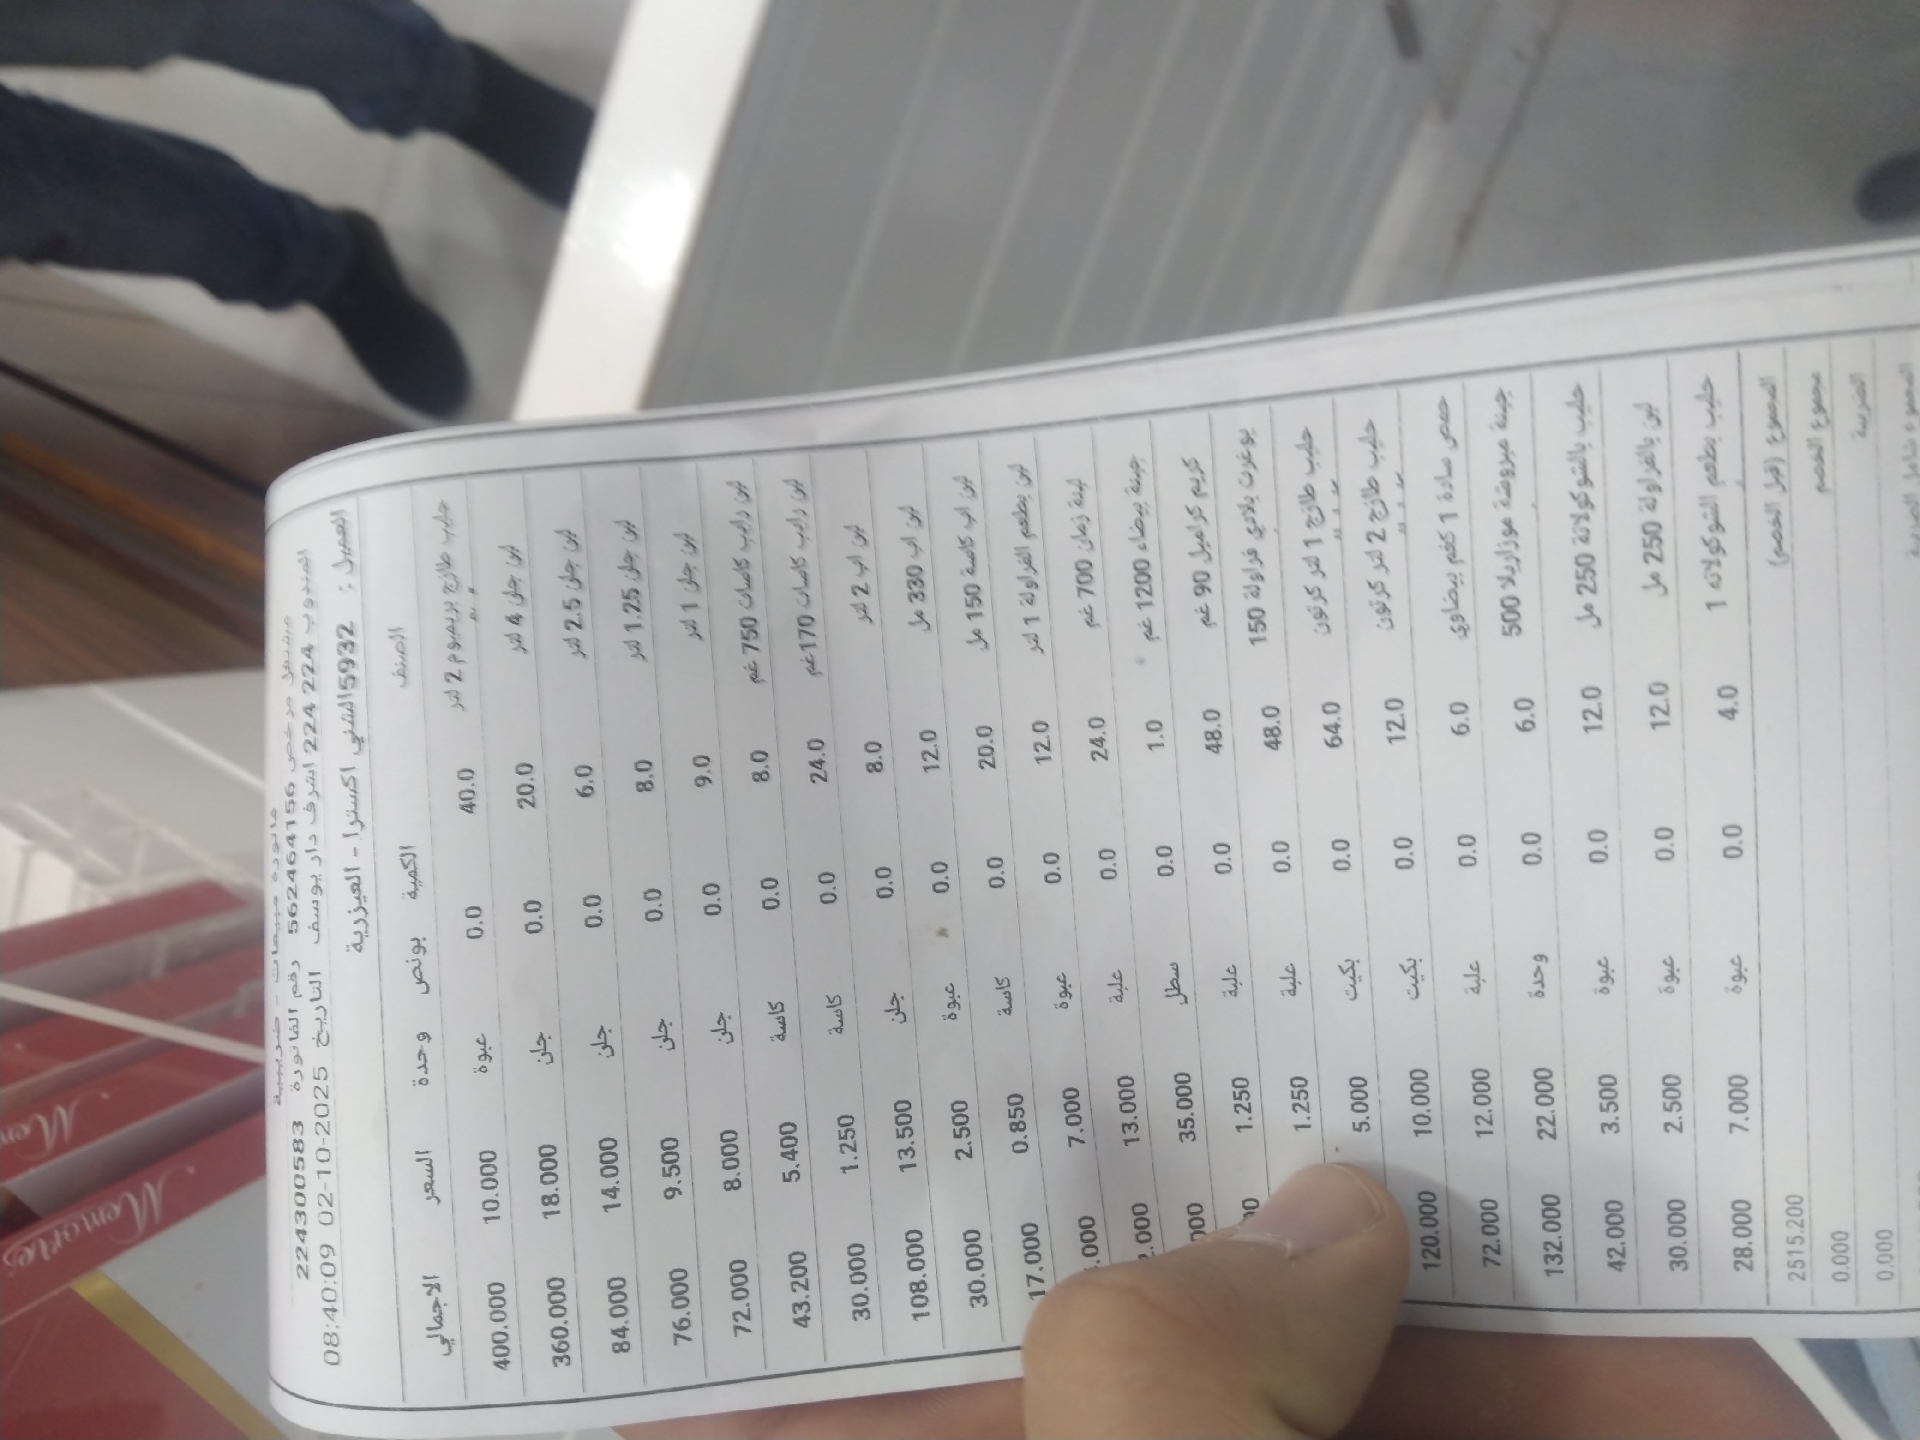 فاتورة مبيعات - ضريبية
مشتغل مرخص 562464156 رقم الفاتورة 224300583
المندوب 224 224 اشرف دار يوسف التاريخ 02-10-2025 08:40:09
العميل : 5932الشني اكسترا - العيزرية
الصنف الكمية بونص وحدة السعر الاجمالي
حليب طازج بريميوم 2 لتر 40.0 0.0 عبوة 10.000 400.000
لبن جلن 4 لتر 20.0 0.0 جلن 18.000 360.000
لبن جلن 2.5 لتر 6.0 0.0 جلن 14.000 84.000
لبن جلن 1.25 لتر 8.0 0.0 جلن 9.500 76.000
لبن جلن 1 لتر 9.0 0.0 جلن 8.000 72.000
لبن رايب كاسات 750 غم 8.0 0.0 كاسة 5.400 43.200
لبن رايب كاسات 170غم 24.0 0.0 كاسة 1.250 30.000
لبن اب 2 لتر 8.0 0.0 جلن 13.500 108.000
لبن اب 330 مل 12.0 0.0 عبوة 2.500 30.000
لبن اب كاسة 150 مل 20.0 0.0 كاسة 0.850 17.000
لبن بطعم الفراولة 1 لتر 12.0 0.0 عبوة 7.000 .000
لبنة زمان 700 غم 24.0 0.0 علبة 13.000 2.000
جبنة بيضاء 1200 غم 1.0 0.0 سطل 35.000 000
كريم كراميل 90 غم 48.0 0.0 علبة 1.250 00
يوغورت بلادي فراولة 150 48.0 0.0 علبة 1.250 00
حليب طازج 1 لتر كرتون 64.0 0.0 بكيت 5.000
حليب طازج 2 لتر كرتون 12.0 0.0 بكيت 10.000 120.000
حمص سادة 1 كغم بيضاوي 6.0 0.0 علبة 12.000 72.000
جبنة مبروشة موزاريلا 500 6.0 0.0 وحدة 22.000 132.000
حليب بالشوكولاتة 250 مل 12.0 0.0 عبوة 3.500 42.000
لبن بالفراولة 250 مل 12.0 0.0 عبوة 2.500 30.000
حليب بطعم الشوكولاته 1 4.0 0.0 عبوة 7.000 28.000
المجموع (قبل الخصم) 2515.200
مجموع الخصم 0.000
الضريبة 0.000
المجموع شامل الضريبة
Memories
Mem